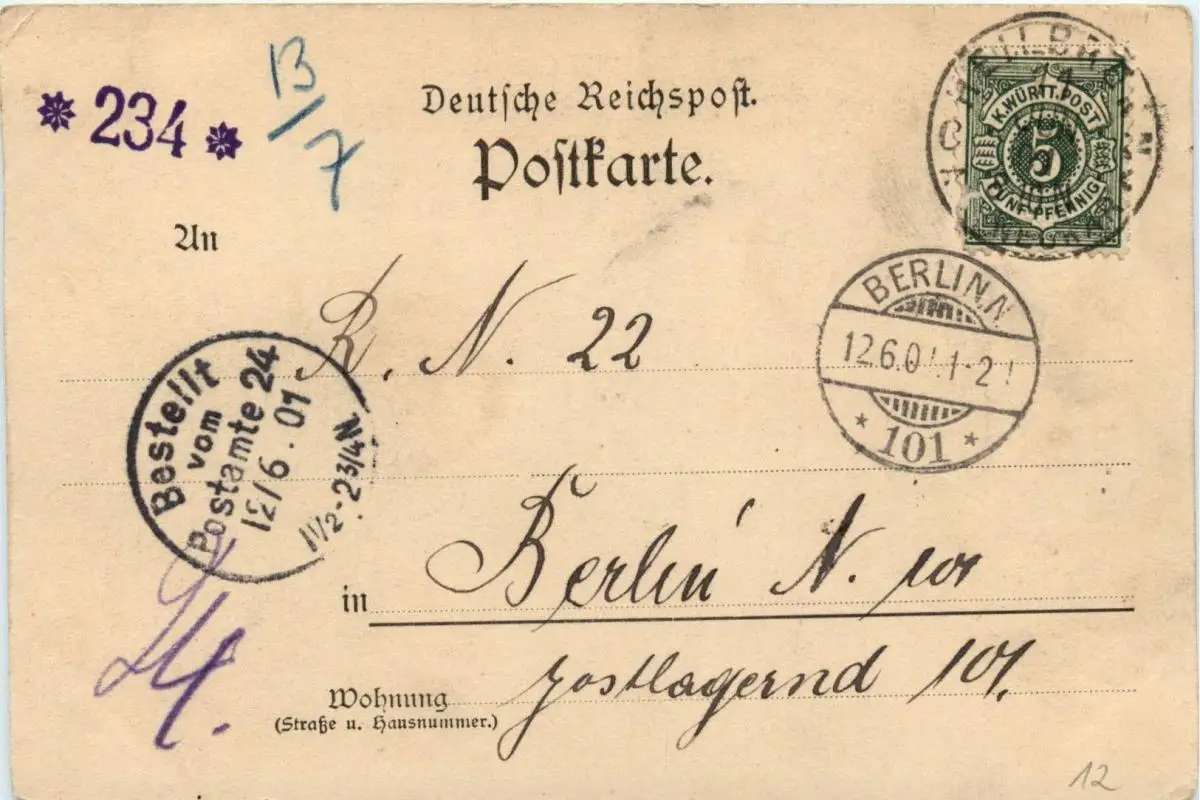 * 234 *
13/7
Deutsche Reichspost.
Postkarte.
HEILBRONN
11
K. WÜRTT. POST
5
FÜNF PFENNIG
An
R. N. 22
BERLIN.N
12.6.01.1-2
* 101 *
Bestellt
vom
Postamte 24
12/6.01
1 1/2-2 3/4 N.
in Berlin N. 101
postlagernd 101.
Wohnung
(Straße u. Hausnummer.)
12